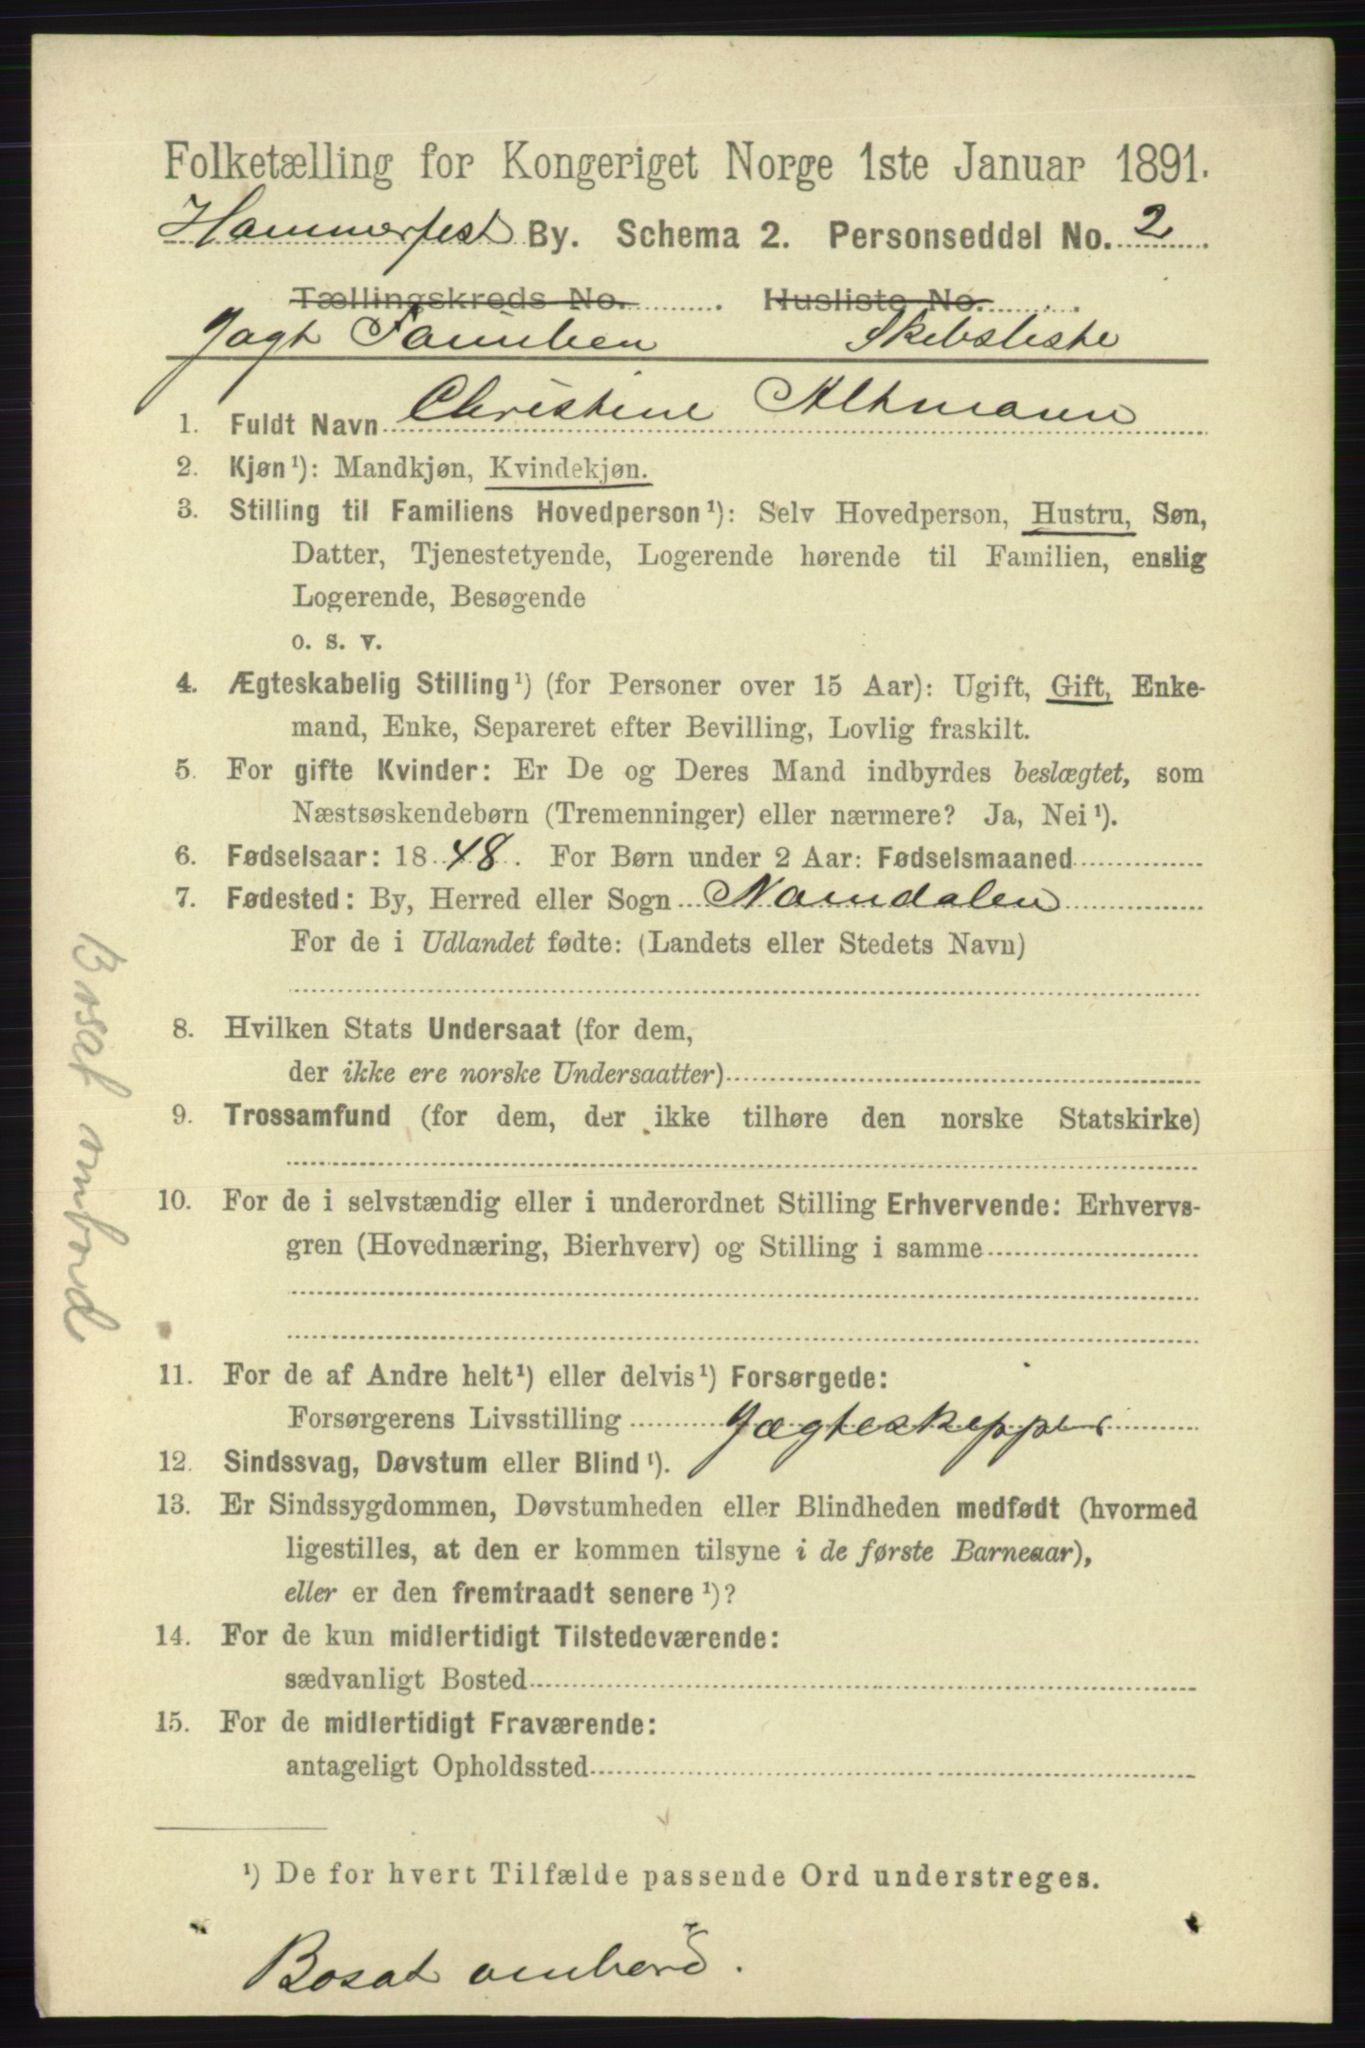 Folketælling for Kongeriget Norge 1ste Januar 1891.
Hammerfest By. Schema 2. Personseddel No. 2
Tællingskreds No. Husliste No.
Jagt Familien Skibsliste
1. Fuldt Navn Christine Altmann
2. Kjøn¹): Mandkjøn, Kvindekjøn.
3. Stilling til Familiens Hovedperson¹): Selv Hovedperson, Hustru, Søn,
Datter, Tjenestetyende, Logerende hørende til Familien, enslig
Logerende, Besøgende
o. s. v.
4. Ægteskabelig Stilling¹) (for Personer over 15 Aar): Ugift, Gift, Enke-
mand, Enke, Separeret efter Bevilling, Lovlig fraskilt.
5. For gifte Kvinder: Er De og Deres Mand indbyrdes beslægtet, som
Næstsøskendebørn (Tremenninger) eller nærmere? Ja, Nei¹).
6. Fødselsaar: 1848. For Børn under 2 Aar: Fødselsmaaned
7. Fødested: By, Herred eller Sogn Namdalen
For de i Udlandet fødte: (Landets eller Stedets Navn)
8. Hvilken Stats Undersaat (for dem,
der ikke ere norske Undersaatter)
9. Trossamfund (for dem, der ikke tilhøre den norske Statskirke)
10. For de i selvstændig eller i underordnet Stilling Erhvervende: Erhvervs-
gren (Hovednæring, Bierhverv) og Stilling i samme
11. For de af Andre helt¹) eller delvis¹) Forsørgede:
Forsørgerens Livsstilling Jægteskipper
12. Sindssvag, Døvstum eller Blind¹).
13. Er Sindssygdommen, Døvstumheden eller Blindheden medfødt (hvormed
ligestilles, at den er kommen tilsyne i de første Barneaar),
eller er den fremtraadt senere¹)?
14. For de kun midlertidigt Tilstedeværende:
sædvanligt Bosted
15. For de midlertidigt Fraværende:
antageligt Opholdssted
¹) De for hvert Tilfælde passende Ord understreges.
Bosat ombord.
Bosat ombord